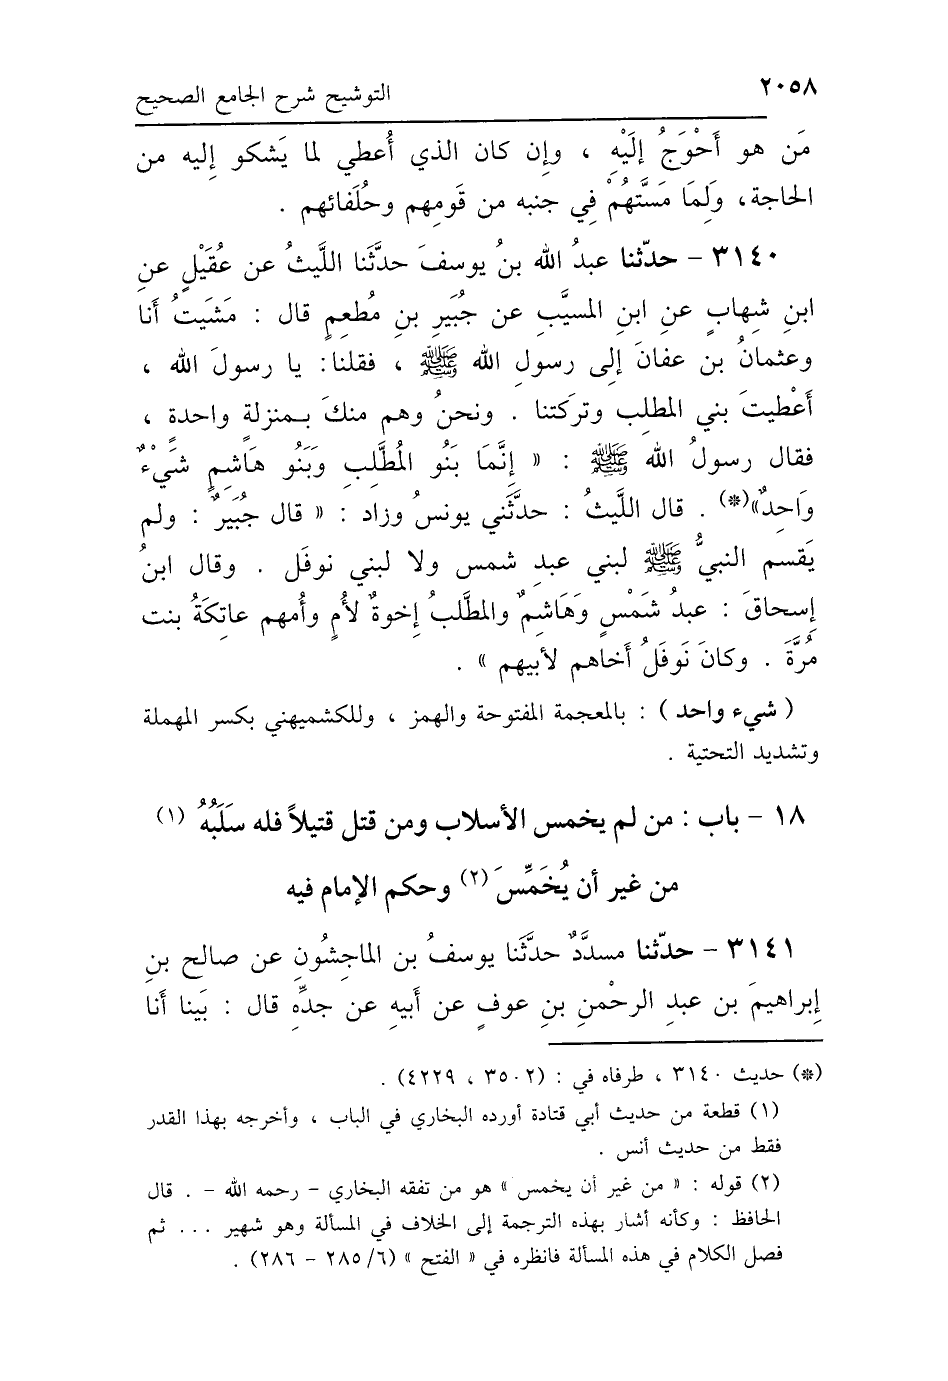 ٢٠٥٨ التوشيح شرح الجامع الصحيح
مَن هو أَحْوَجُ إلَيْهِ ، وإن كان الذي أُعطي لما يَشكو إليه من
الحاجة، ولَمَا مَسَّتهُمْ في جنبه من قَومِهم وحُلَفائهم .
٣١٤٠ - حدّثنا عبدُ الله بنُ يوسفَ حدَّثَنا اللَّيثُ عن عُقَيْلٍ عنِ
ابنِ شِهابٍ عنِ ابنِ المسيَّبِ عن جُبَيرِ بنِ مُطعِمٍ قال : مَشَيتُ أنا
وعثمانُ بن عفانَ إلى رسولِ الله ﷺ ، فقلنا: يا رسولَ الله ،
أَعْطيتَ بني المطلِب وتركتنا . ونحنُ وهم منكَ بـمنزلةٍ واحدةٍ ،
فقال رسولُ الله ﷺ : « إِنَّمَا بَنُو المُطَّلِبِ وَبَنُو هَاشِمٍ شَيْءٌ
وَاحِدٌ»(*) . قال اللَّيثُ : حدَّثَني يونسُ وزاد : « قال جُبَيرٌ : ولم
يَقسم النبيُّ ﷺ لبني عبدِ شمس ولا لبني نوفَل . وقال ابنُ
إسحاقَ : عبدُ شَمْسٍ وَهَاشمٌ والمطَّلبُ إخوةٌ لأُمٍ وأُمهم عاتِكَةُ بنت
مُرَّةَ . وكانَ نَوفَلُ أخاهم لأبيهم » .
( شيء واحد ) : بالمعجمة المفتوحة والهمز ، وللكشميهني بكسر المهملة
وتشديد التحتية .
١٨ - باب : من لم يخمس الأسلاب ومن قتل قتيلاً فله سَلَبُهُ (١)
من غير أن يُخَمِّسَ (٢) وحكم الإمام فيه
٣١٤١ - حدّثنا مسدَّدٌ حدَّثَنا يوسفُ بن الماجشُونِ عن صالح بنِ
إبراهيمَ بن عبدِ الرحْمنِ بنِ عوفٍ عن أبيهِ عن جدِّهِ قال : بَينا أنا
(*) حديث ٣١٤٠ ، طرفاه في : (٣٥٠٢ ، ٤٢٢٩) .
(١) قطعة من حديث أبي قتادة أورده البخاري في الباب ، وأخرجه بهذا القدر
فقط من حديث أنس .
(٢) قوله : « من غير أن يخمس » هو من تفقه البخاري - رحمه الله - . قال
الحافظ : وكأنه أشار بهذه الترجمة إلى الخلاف في المسألة وهو شهير ... ثم
فصل الكلام في هذه المسألة فانظره في « الفتح » (٦/ ٢٨٥ - ٢٨٦) .